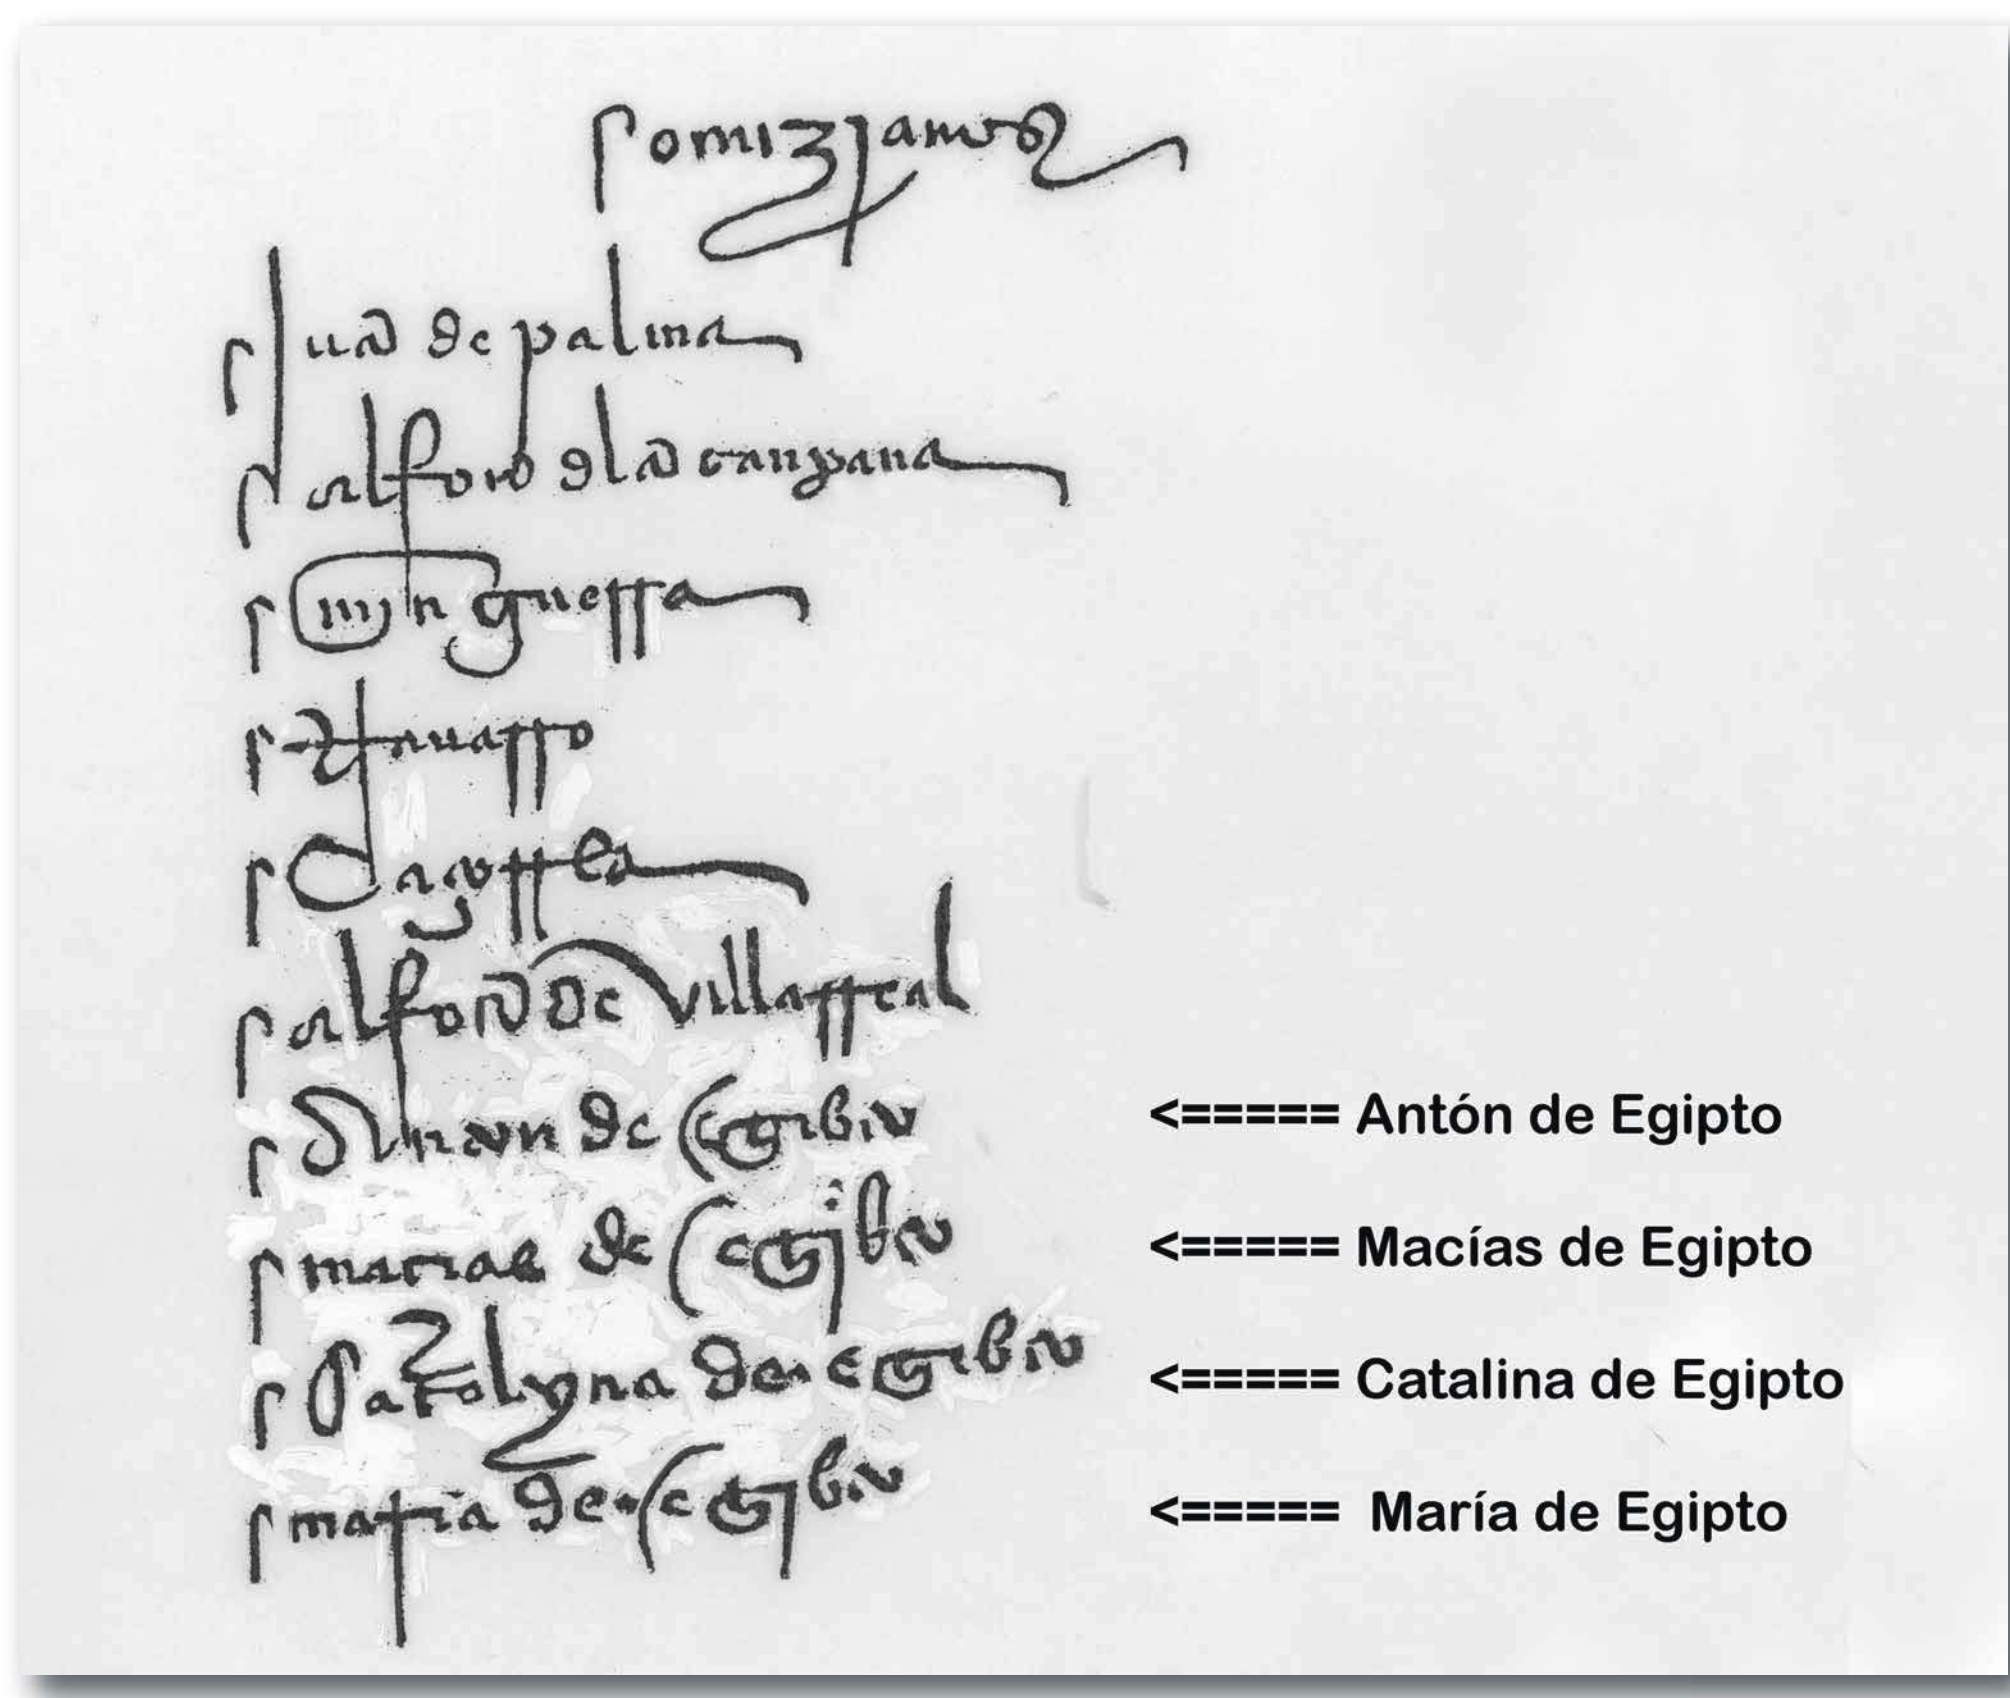 omizianos
juan de palma
alfonso de la canpana
min guerra
navarro
alfon de villarreal
Anton de Egibto <===== Antón de Egipto
macias de Egibto <===== Macías de Egipto
Catalyna de egibto <===== Catalina de Egipto
maria de Egibto <===== María de Egipto